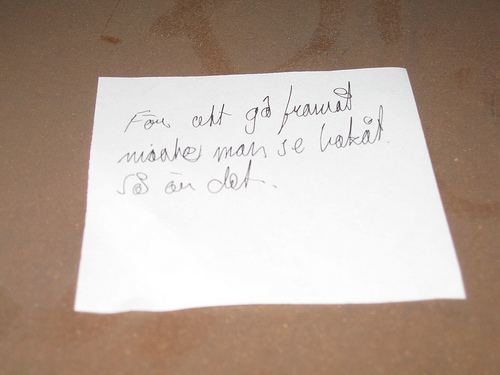 För att gå framåt
måste man se bakåt.
Så är det.